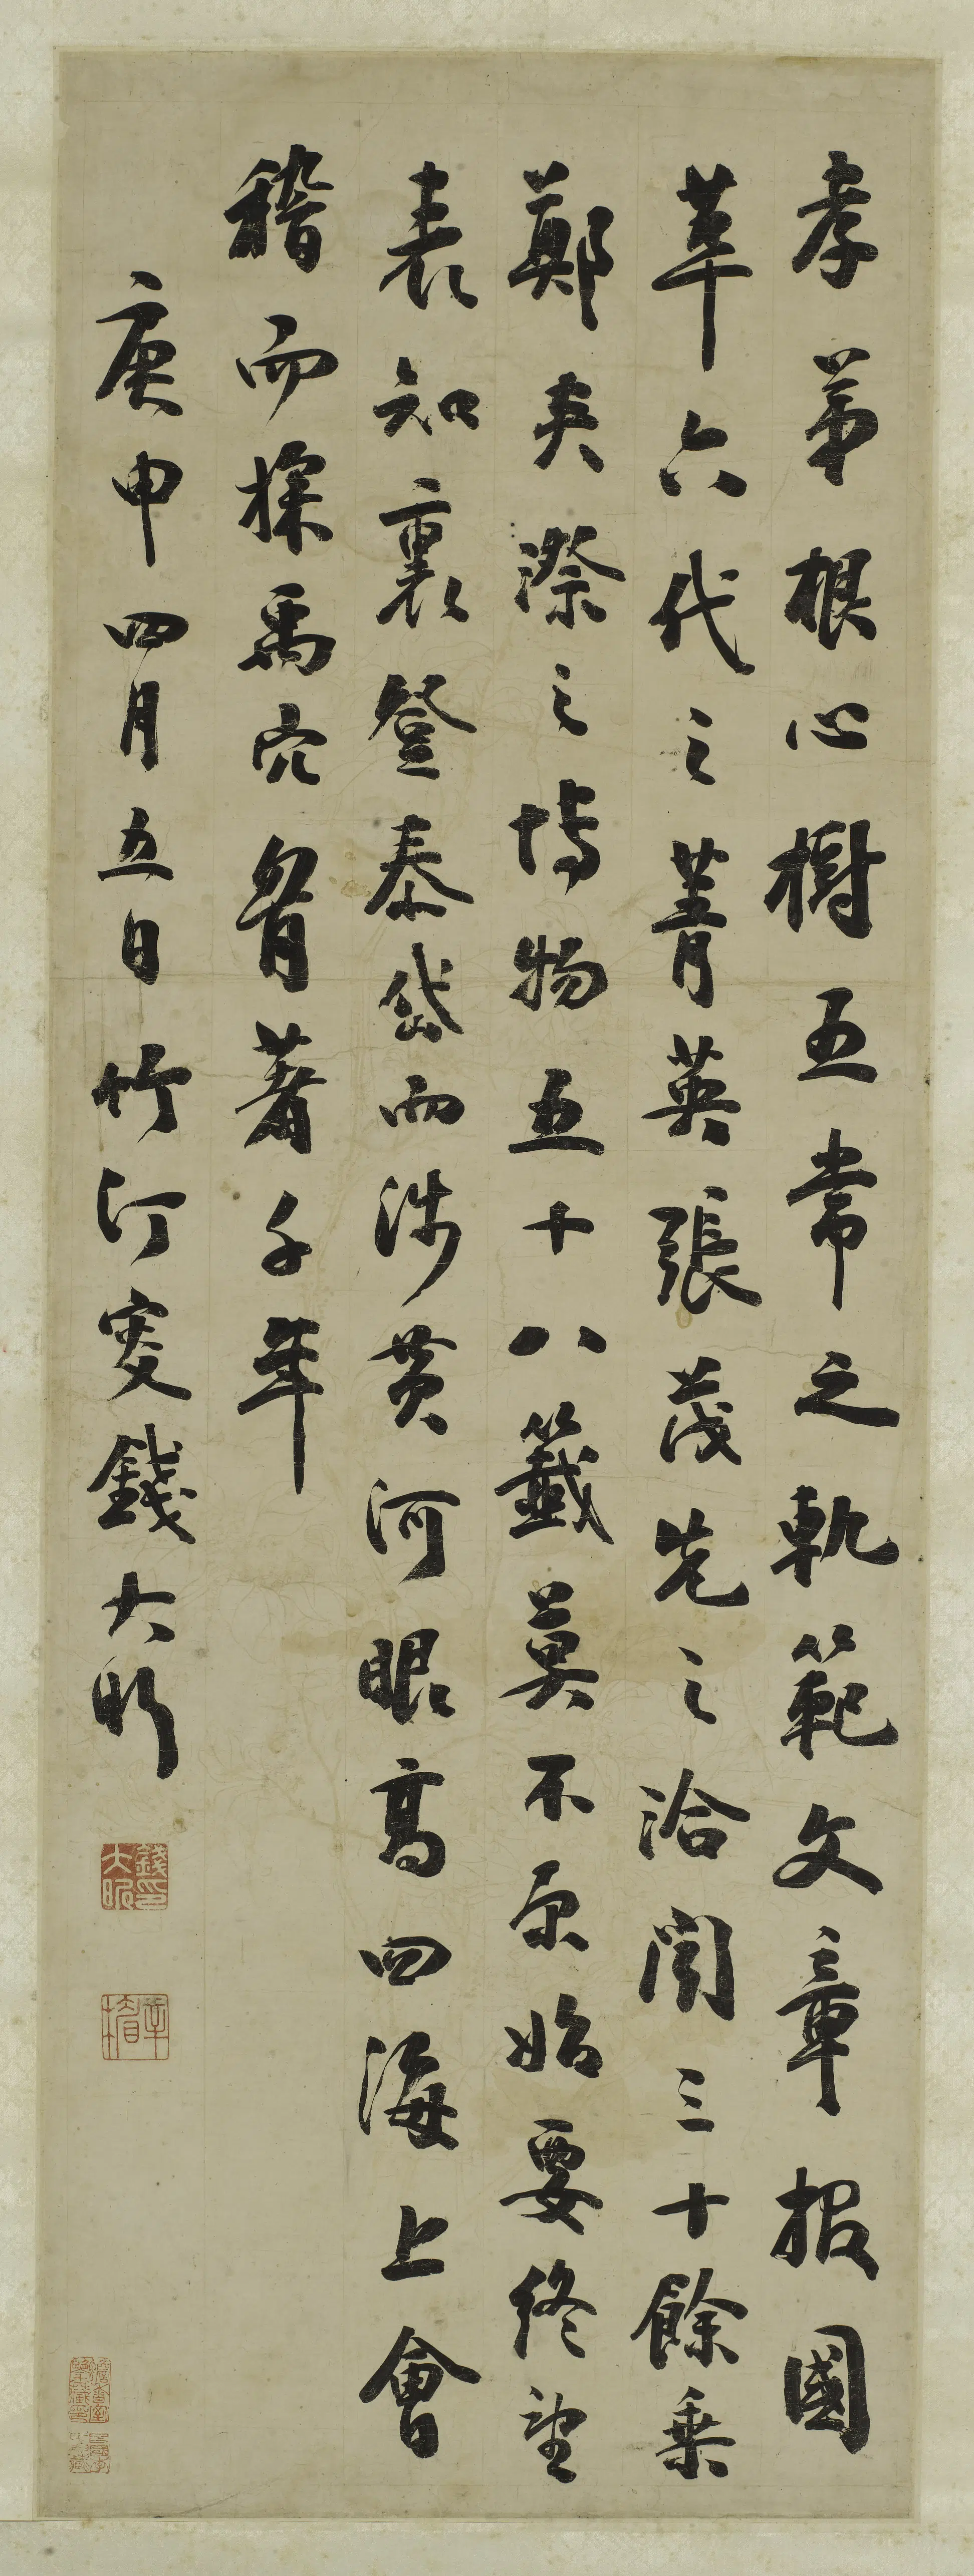 孝弟根心樹五常之軌範文章報國
萃六代之菁英張茂先之洽聞三十餘乘
鄭夾漈之博物五十八籤莫不原始要終望
表知裏登泰岱而涉黃河眼高四海上會
稽而探禹穴胷著千年
庚申四月五日竹汀叟錢大昕
錢大昕印